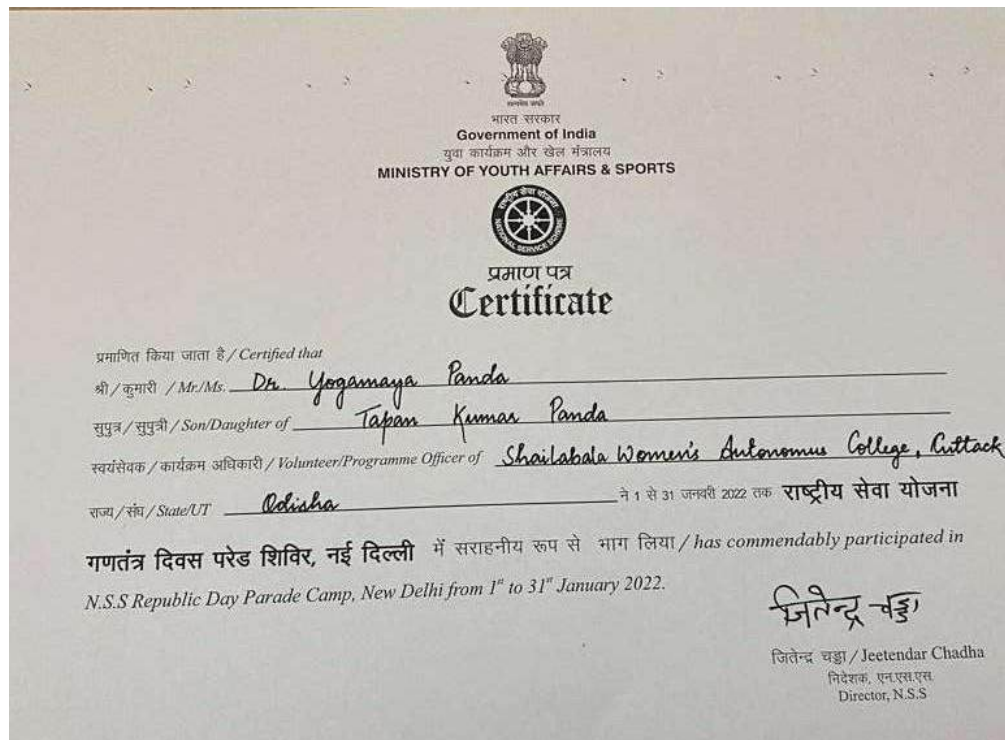 सत्यमेव जयते
भारत सरकार
Government of India
युवा कार्यक्रम और खेल मंत्रालय
MINISTRY OF YOUTH AFFAIRS & SPORTS
राष्ट्रीय सेवा योजना
NATIONAL SERVICE SCHEME
प्रमाण पत्र
Certificate
प्रमाणित किया जाता है / Certified that
श्री / कुमारी / Mr./Ms. Dr. Yogamaya Panda
सुपुत्र / सुपुत्री / Son/Daughter of Tapan Kumar Panda
स्वयंसेवक / कार्यक्रम अधिकारी / Volunteer/Programme Officer of Shailabala Women's Autonomus College, Cuttack
राज्य / संघ / State/UT Odisha ने 1 से 31 जनवरी 2022 तक राष्ट्रीय सेवा योजना
गणतंत्र दिवस परेड शिविर, नई दिल्ली में सराहनीय रूप से भाग लिया / has commendably participated in
N.S.S Republic Day Parade Camp, New Delhi from 1st to 31st January 2022.
जितेन्द्र चड्ढा
जितेन्द्र चड्ढा / Jeetendar Chadha
निदेशक, एन.एस.एस.
Director, N.S.S